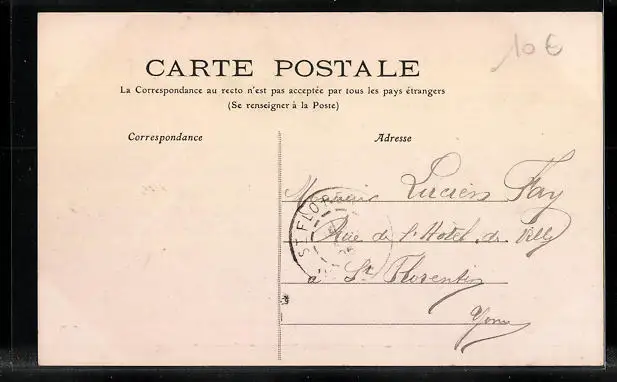 10 €
CARTE POSTALE
La Correspondance au recto n'est pas acceptée par tous les pays étrangers
(Se renseigner à la Poste)
Correspondance
Adresse
Monsieur Lucien Fay
Rue de l'Hôtel de Ville
à St Florentin
Yonne
ST FLO